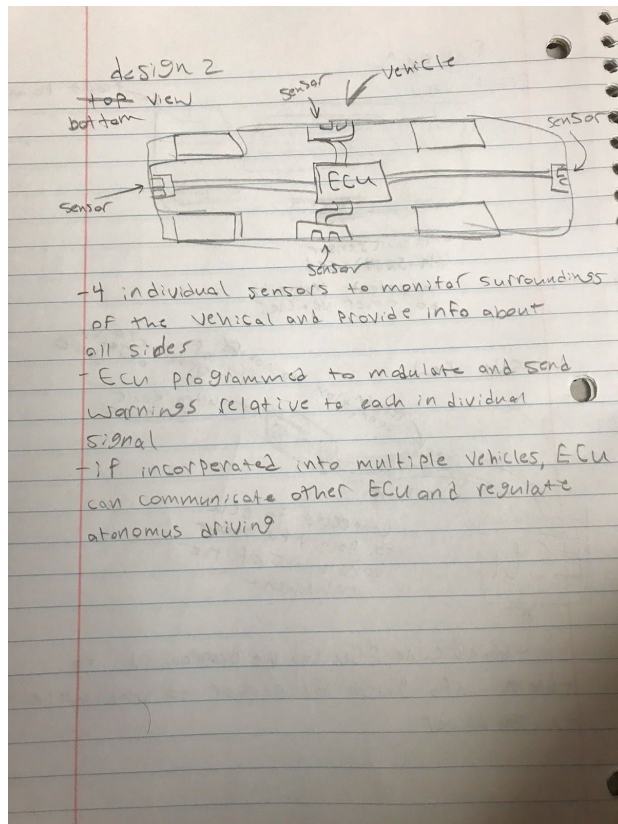 design 2
top view
bottom
sensor
vehicle
sensor
ECU
sensor
sensor
-4 individual sensors to monitor surroundings
of the vehical and provide info about
all sides
- ECU programmed to modulate and send
warnings relative to each individual
signal
-if incorperated into multiple vehicles, ECU
can communicate other ECU and regulate
atonomus driving